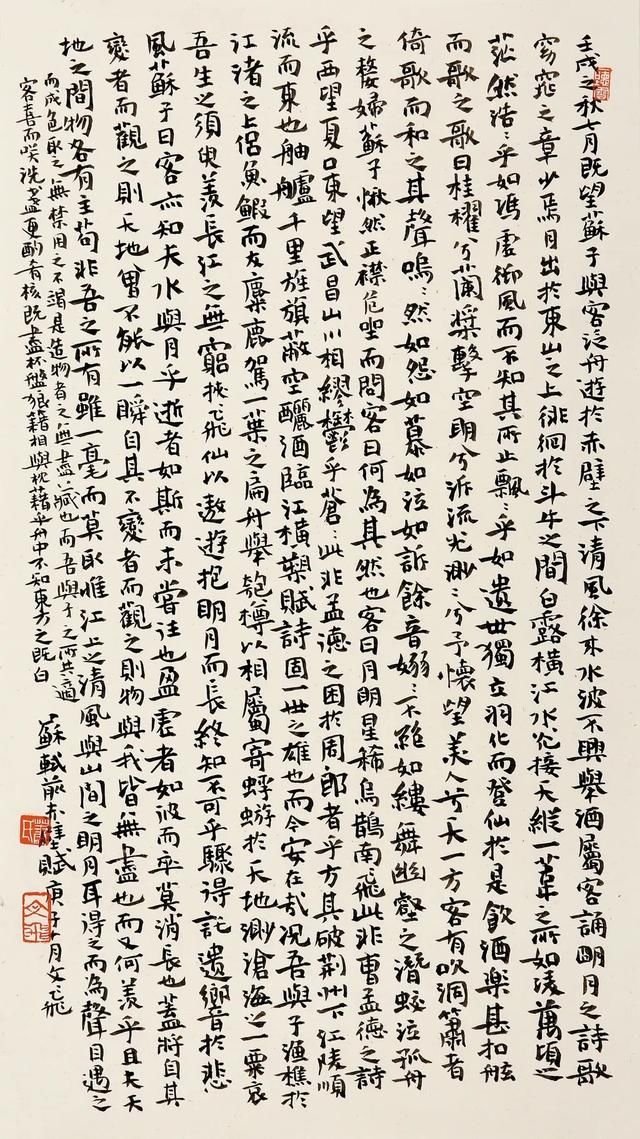 壬戌之秋七月既望蘇子與客泛舟遊於赤壁之下清風徐來水波不興舉酒屬客誦明月之詩歌
窈窕之章少焉月出於東山之上徘徊於斗牛之間白露橫江水光接天縱一葦之所如淩萬頃之
茫然浩〻乎如馮虛御風而不知其所止飄〻乎如遺世獨立羽化而登仙於是飲酒樂甚扣舷
而歌之歌曰桂櫂兮蘭槳擊空明兮泝流光渺〻兮予懷望美人兮天一方客有吹洞簫者
倚歌而和之其聲嗚〻然如怨如慕如泣如訴餘音嫋〻不絕如縷舞幽壑之潛蛟泣孤舟
之嫠婦蘇子愀然正襟危坐而問客曰何為其然也客曰月明星稀烏鵲南飛此非曹孟德之詩
乎西望夏口東望武昌山川相繆鬱乎蒼〻此非孟德之困於周郎者乎方其破荊州下江陵順
流而東也舳艫千里旌旗蔽空釃酒臨江橫槊賦詩固一世之雄也而今安在哉況吾與子漁樵於
江渚之上侶魚蝦而友麋鹿駕一葉之扁舟舉匏樽以相屬寄蜉蝣於天地渺滄海之一粟哀
吾生之須臾羨長江之無窮挾飛仙以遨遊抱明月而長終知不可乎驟得託遺響於悲
風蘇子曰客亦知夫水與月乎逝者如斯而未嘗往也盈虛者如彼而卒莫消長也蓋將自其
變者而觀之則天地曾不能以一瞬自其不變者而觀之則物與我皆無盡也而又何羨乎且夫天
地之間物各有主苟非吾之所有雖一毫而莫取惟江上之清風與山間之明月耳得之而為聲目遇之
而成色取之無禁用之不竭是造物者之無盡藏也而吾與子之所共適
客喜而咲洗盞更酌肴核既盡杯盤狼藉相與枕藉乎舟中不知東方之既白
蘇軾前赤壁賦庚子月文飛